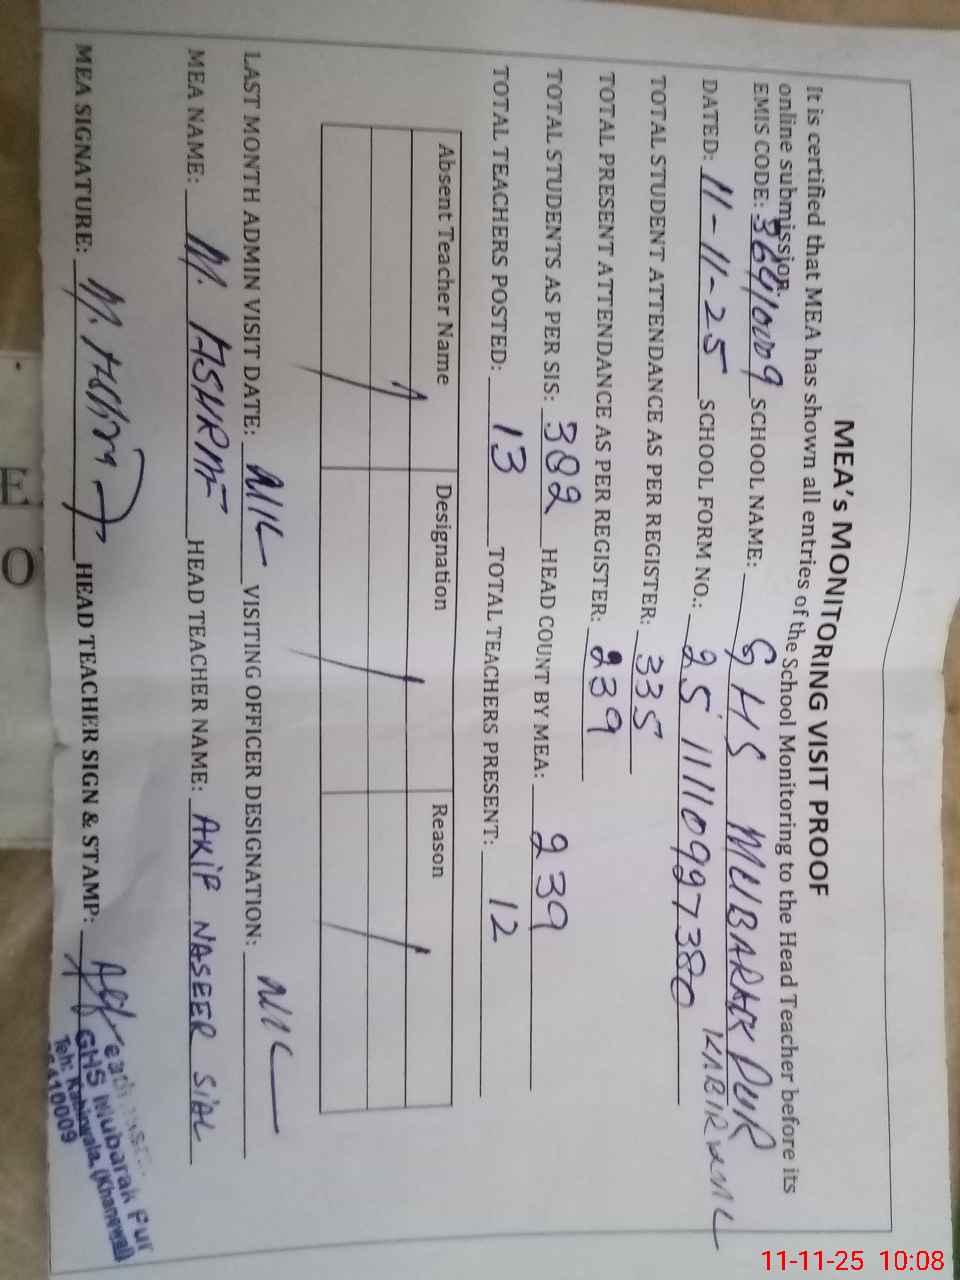 MEA's MONITORING VISIT PROOF
It is certified that MEA has shown all entries of the School Monitoring to the Head Teacher before its
online submission.
EMIS CODE: 36410009 SCHOOL NAME: GHS MUBARAK PUR
KABIRWALA
DATED: 11-11-25 SCHOOL FORM NO.: 25111110997380
TOTAL STUDENT ATTENDANCE AS PER REGISTER: 335
TOTAL PRESENT ATTENDANCE AS PER REGISTER: 239
TOTAL STUDENTS AS PER SIS: 382 HEAD COUNT BY MEA: 239
TOTAL TEACHERS POSTED: 13 TOTAL TEACHERS PRESENT: 12
Absent Teacher Name Designation Reason
LAST MONTH ADMIN VISIT DATE: NIL VISITING OFFICER DESIGNATION: NIL
MEA NAME: M. HEAD TEACHER NAME: AKIF NASEER SIAL
MEA SIGNATURE: M. HEAD TEACHER SIGN & STAMP:
GHS Mubarak Pur
Teh: Kabirwala, (Khanewal)
36410009
11-11-25 10:08